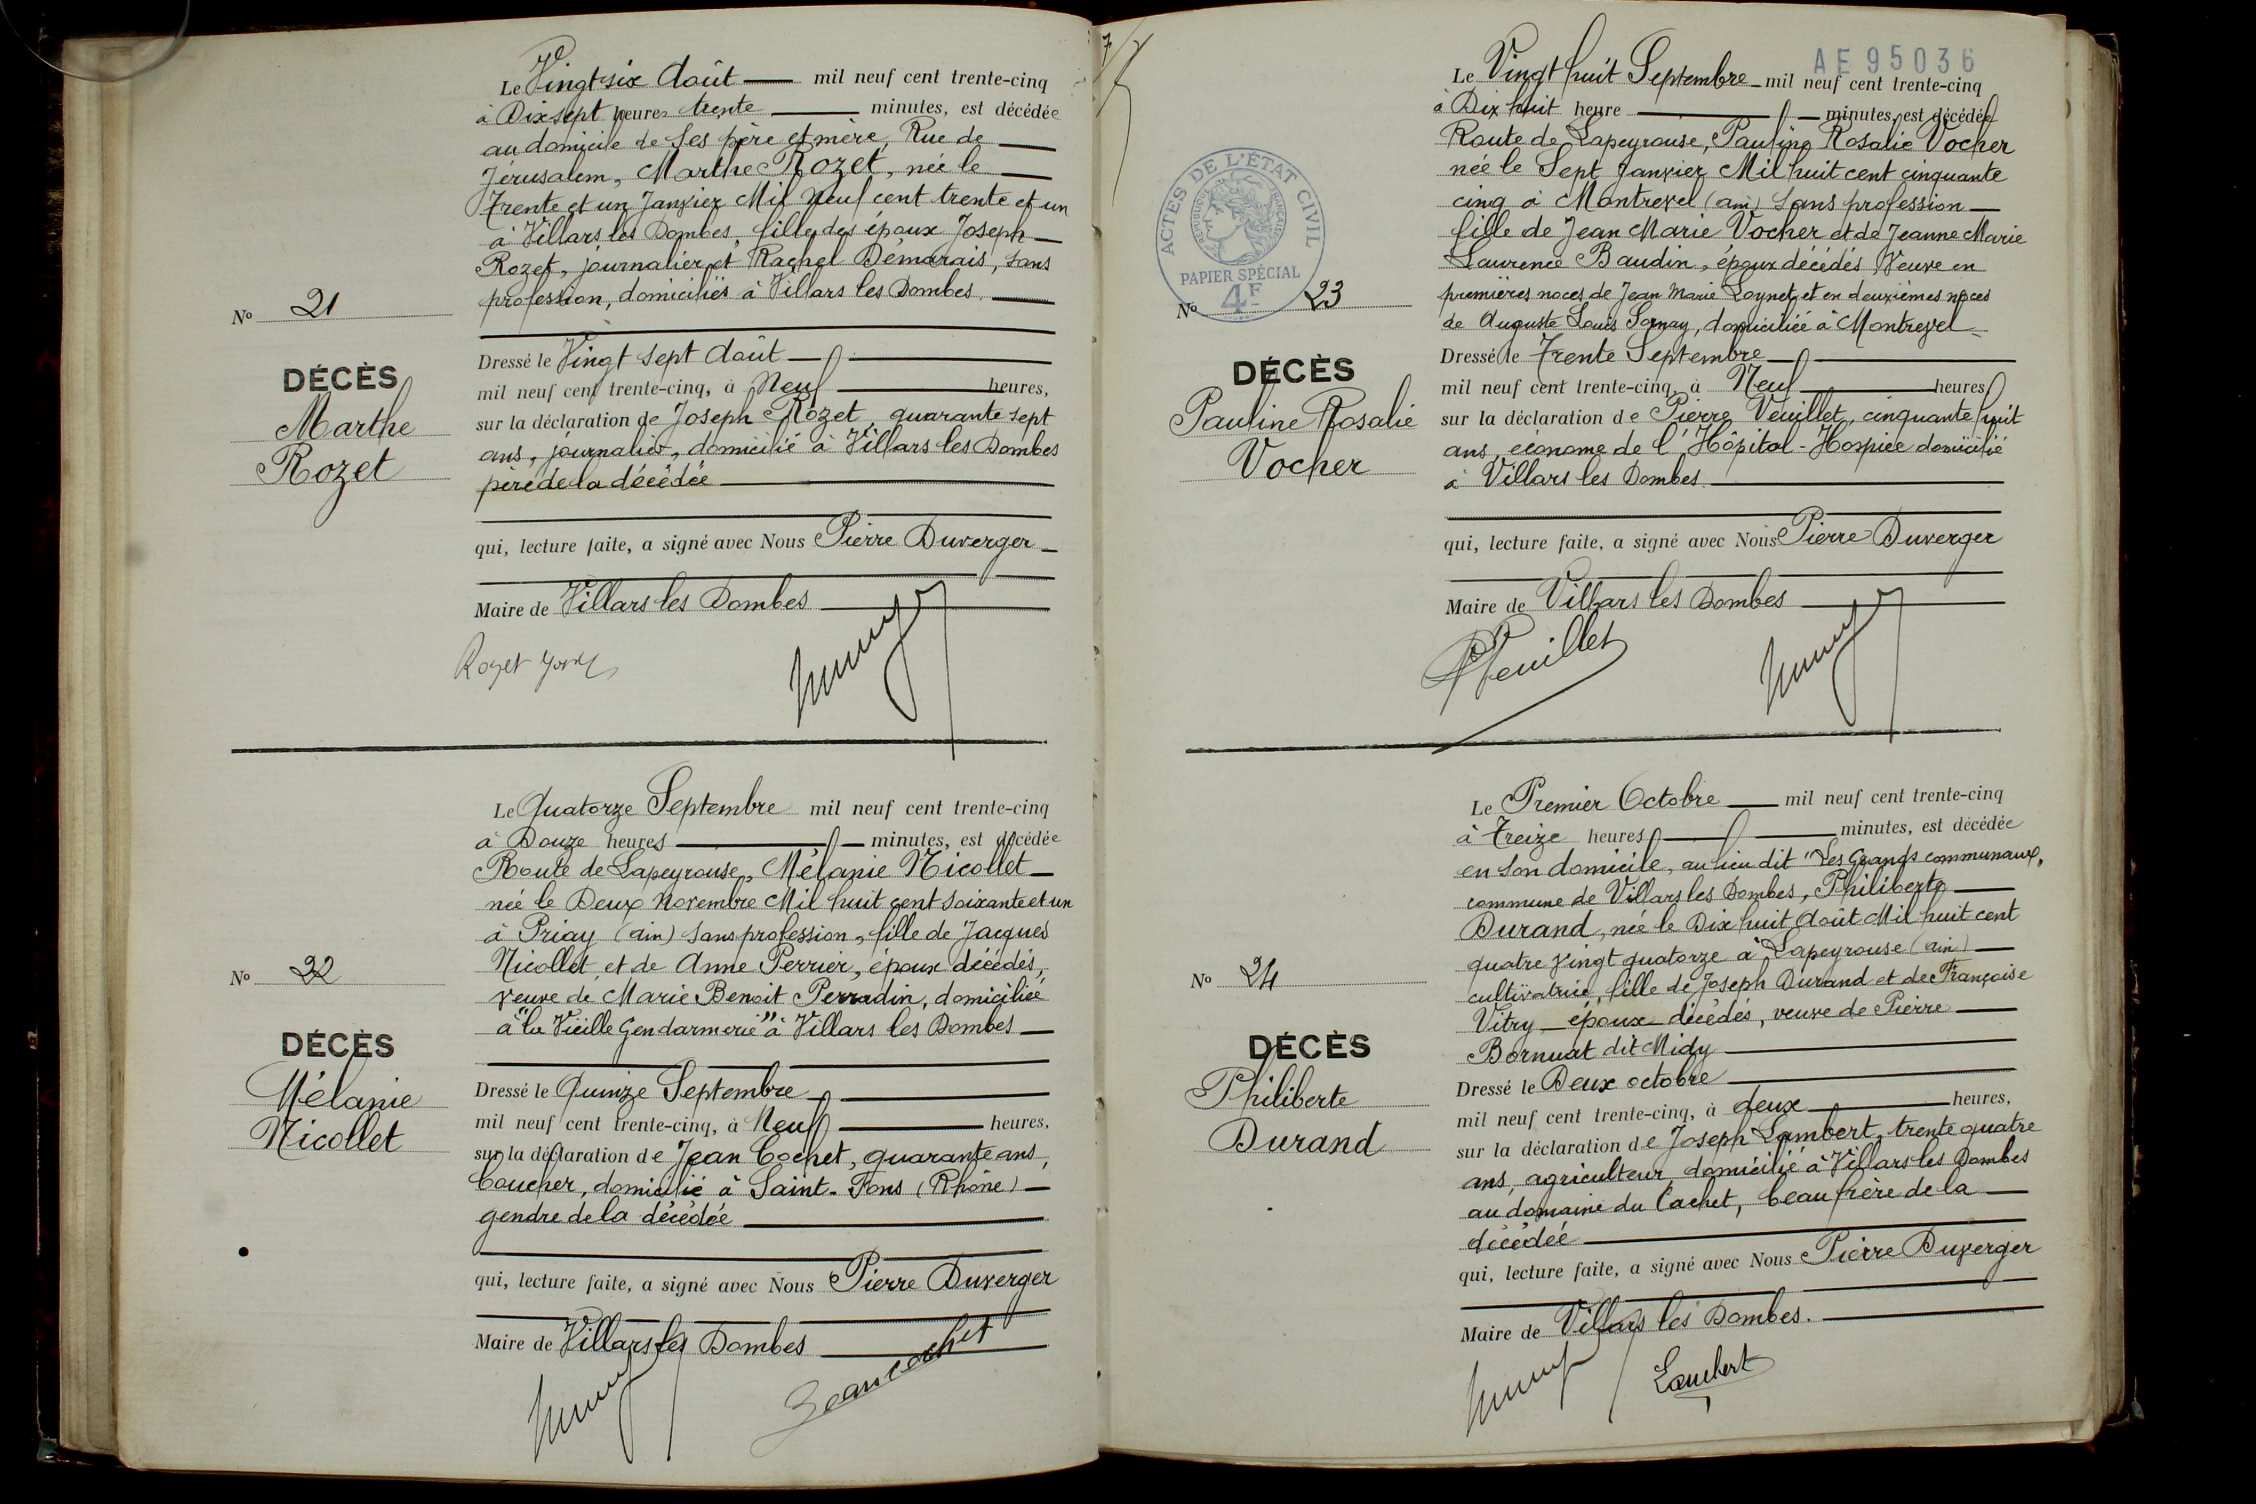 Le Vingt six Août mil neuf cent trente-cinq
à Dix sept heures trente minutes, est décédée
au domicile de ses père et mère, Rue de
Jérusalem, Marthe Rozet, née le
Trente et un Janvier Mil neuf cent trente et un
à Villars les Dombes, fille des époux Joseph
Rozet, journalier et Rachel Démarais, sans
profession, domiciliés à Villars les Dombes.
No 21
DÉCÈS
Marthe
Rozet
Dressé le Vingt sept Août
mil neuf cent trente-cinq, à Neuf heures,
sur la déclaration de Joseph Rozet, quarante sept
ans, journalier, domicilié à Villars les Dombes
père de la décédée
qui, lecture faite, a signé avec Nous Pierre Duverger
Maire de Villars les Dombes
Rozet
Le Quatorze Septembre mil neuf cent trente-cinq
à Douze heures minutes, est décédée
Route de Lapeyrouse, Mélanie Nicollet
née le Deux Novembre Mil huit cent soixante et un
à Priay (ain) sans profession, fille de Jacques
Nicollet et de Anne Perrier, époux décédés,
veuve de Marie Benoit Perradin, domiciliée
à "la Vieille Gendarmerie" à Villars les Dombes
No 22
DÉCÈS
Mélanie
Nicollet
Dressé le Quinze Septembre
mil neuf cent trente-cinq, à Neuf heures,
sur la déclaration de Jean Cochet, quarante ans,
boucher, domicilié à Saint-Fons (Rhône)
gendre de la décédée
qui, lecture faite, a signé avec Nous Pierre Duverger
Maire de Villars les Dombes
Jean Cochet
7
AE95036
Le Vingt huit Septembre mil neuf cent trente-cinq
à Dix huit heure minutes, est décédée
Route de Lapeyrouse, Pauline Rosalie Vocher
née le Sept Janvier Mil huit cent cinquante
cinq à Montrevel (ain) sans profession
fille de Jean Marie Vocher et de Jeanne Marie
Laurence Baudin, époux décédés, Veuve en
premières noces de Jean Marie Loynet et en deuxièmes noces
de Auguste Louis Sornay, domiciliée à Montrevel
ACTES DE L'ÉTAT CIVIL
RÉPUBLIQUE FRANÇAISE
PAPIER SPÉCIAL
4F
No 23
DÉCÈS
Pauline Rosalie
Vocher
Dressé le Trente Septembre
mil neuf cent trente-cinq, à Neuf heures
sur la déclaration de Pierre Veuillet, cinquante huit
ans, économe de l'Hôpital-Hospice domicilié
à Villars les Dombes
qui, lecture faite, a signé avec Nous Pierre Duverger
Maire de Villars les Dombes
PVeuillet
Le Premier Octobre mil neuf cent trente-cinq
à Treize heures minutes, est décédée
en son domicile, au lieu dit "Les Grands communaux,
commune de Villars les Dombes, Philiberte
Durand, née le Dix huit Août Mil huit cent
quatre vingt quatorze à Lapeyrouse (ain)
cultivatrice, fille de Joseph Durand et de Françoise
Vitry époux décédés, veuve de Pierre
Bornuat dit Midy
No 24
DÉCÈS
Philiberte
Durand
Dressé le Deux octobre
mil neuf cent trente-cinq, à deux heures,
sur la déclaration de Joseph Lambert, trente quatre
ans, agriculteur, domicilié à Villars les Dombes
au domaine du Cachet, beau frère de la
décédée
qui, lecture faite, a signé avec Nous Pierre Duverger
Maire de Villars les Dombes.
Lambert